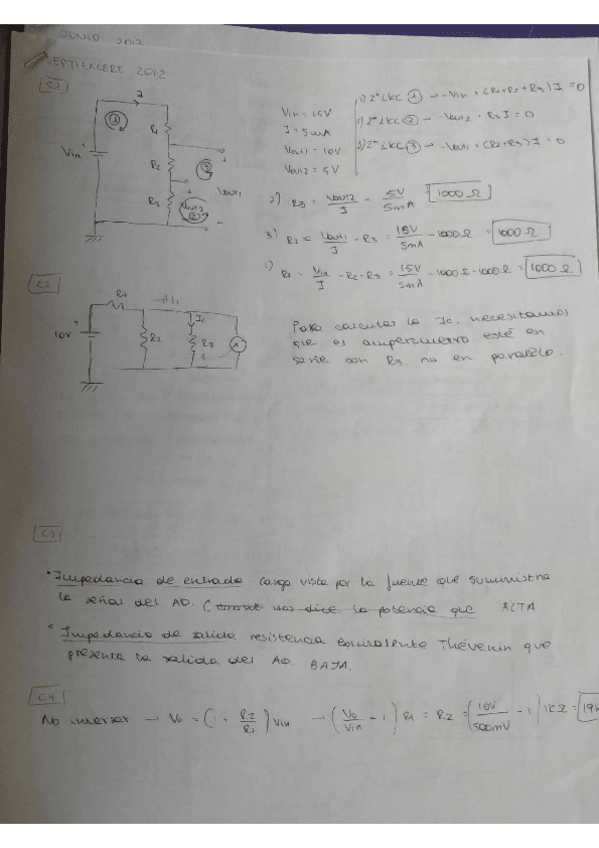 JUNIO 2012
SEPTIEMBRE 2012
C1
I
1
R1
Vin
R2
2
Vout1
R3
Vout2
Vin = 15V
I = 5mA
Vout1 = 10V
Vout2 = 5V
1) 2ª LKC ① → -Vin + (R1+R2+R3)I = 0
2) 2ª LKC ② → -Vout2 + R3 I = 0
3) 2ª LKC ③ → -Vout1 + (R2+R3)I = 0
2) R3 = Vout2/I = 5V/5mA = 1000 Ω
3) R2 = Vout1/I - R3 = 10V/5mA - 1000Ω = 1000 Ω
1) R1 = Vin/I - R2 - R3 = 15V/5mA - 1000Ω - 1000Ω = 1000 Ω
C2
R1
→ I1
10V
R2
Ic
R3
A
Para calcular la Ic, necesitamos
que el amperímetro esté en
serie con R3, no en paralelo.
C3
• Impedancia de entrada carga vista por la fuente que suministra
la señal del AO. ALTA
• Impedancia de salida resistencia equivalente Thévenin que
presenta la salida del AO. BAJA.
C4
No inversor → Vo = (1 + R2/R1) Vin → (Vo/Vin - 1) R1 = R2 = (10V/500mV - 1) 1KΩ = 19K